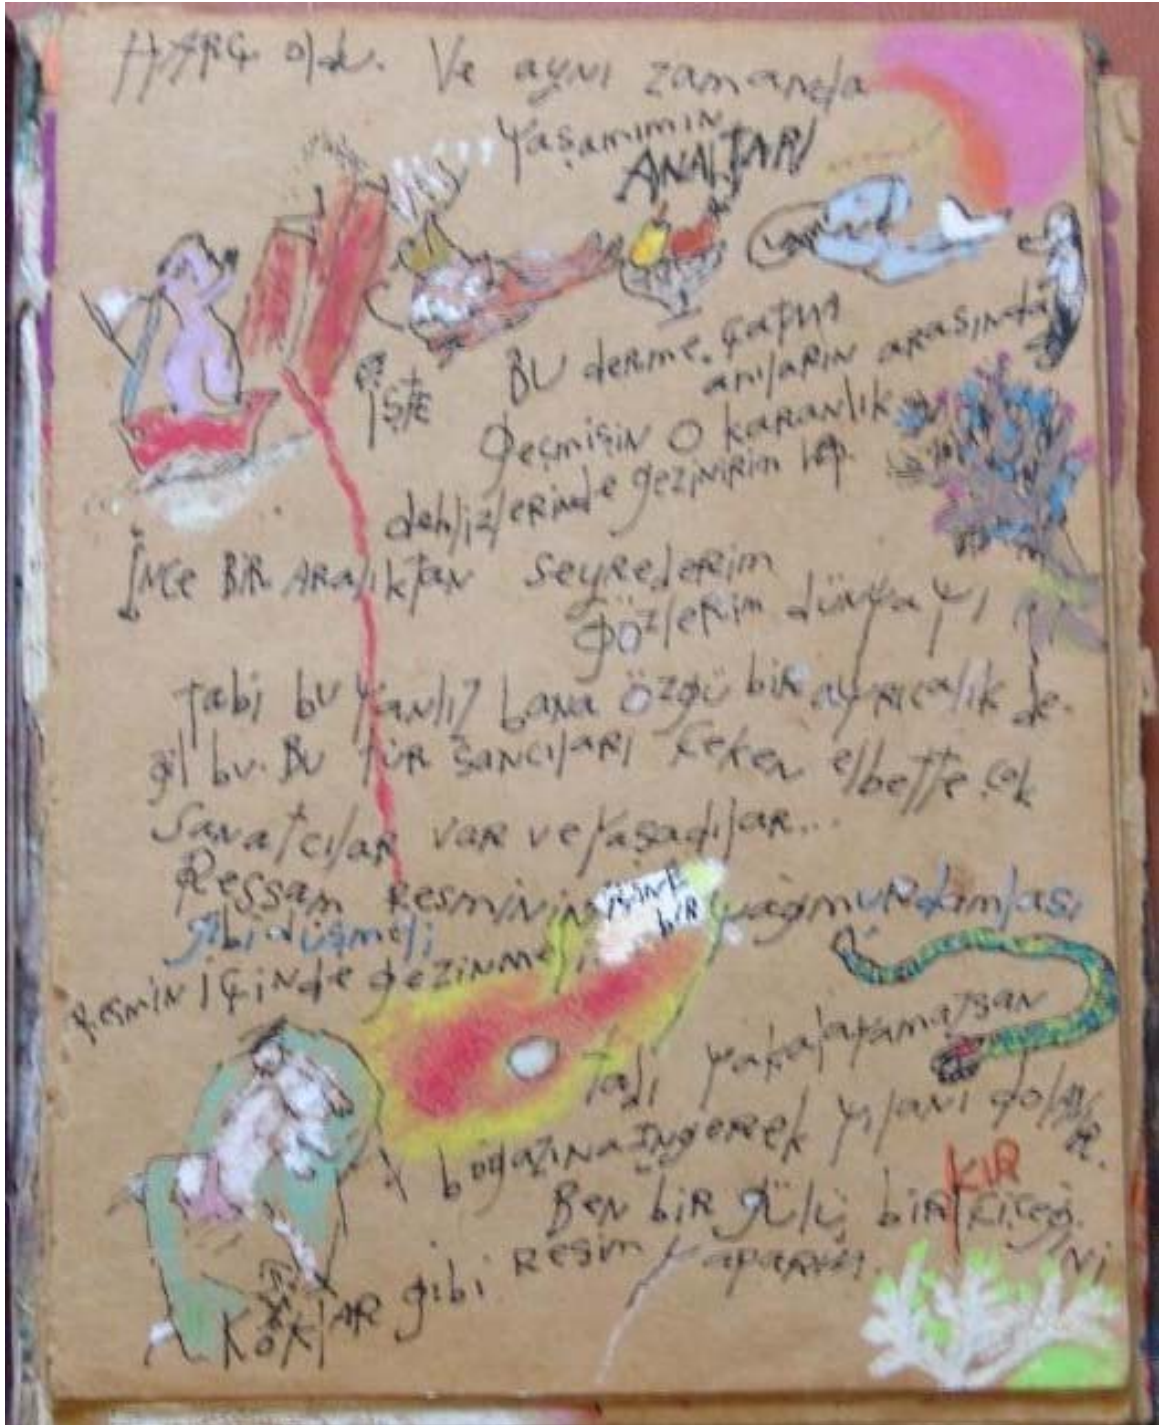 HARÇ oldu. Ve aynı zamanda
Yaşamımın
ANAHTARI
İŞTE
BU derme. çatma
anıların arasında
geçmişin O karanlık
dehlizlerinde gezinirim hep.
İNCE BİR ARAlıkTAN seyrederim
gözlerim dünyayı
tabi bu yanlız bana özgü bir ayrıcalık de-
ğil bu. Bu tür sancıları çeken elbette çok
Sanatcılar var ve yaşadılar...
Ressam resminin içine bir yağmur damlası
gibi düşmeli
resmin içinde gezinmeli
Tadı yakalayamazsan
boğazına engerek yılanı dolanır.
Ben bir gülü, bir KIR çiçeği-
ni
KOKlAR gibi resim yaparım.